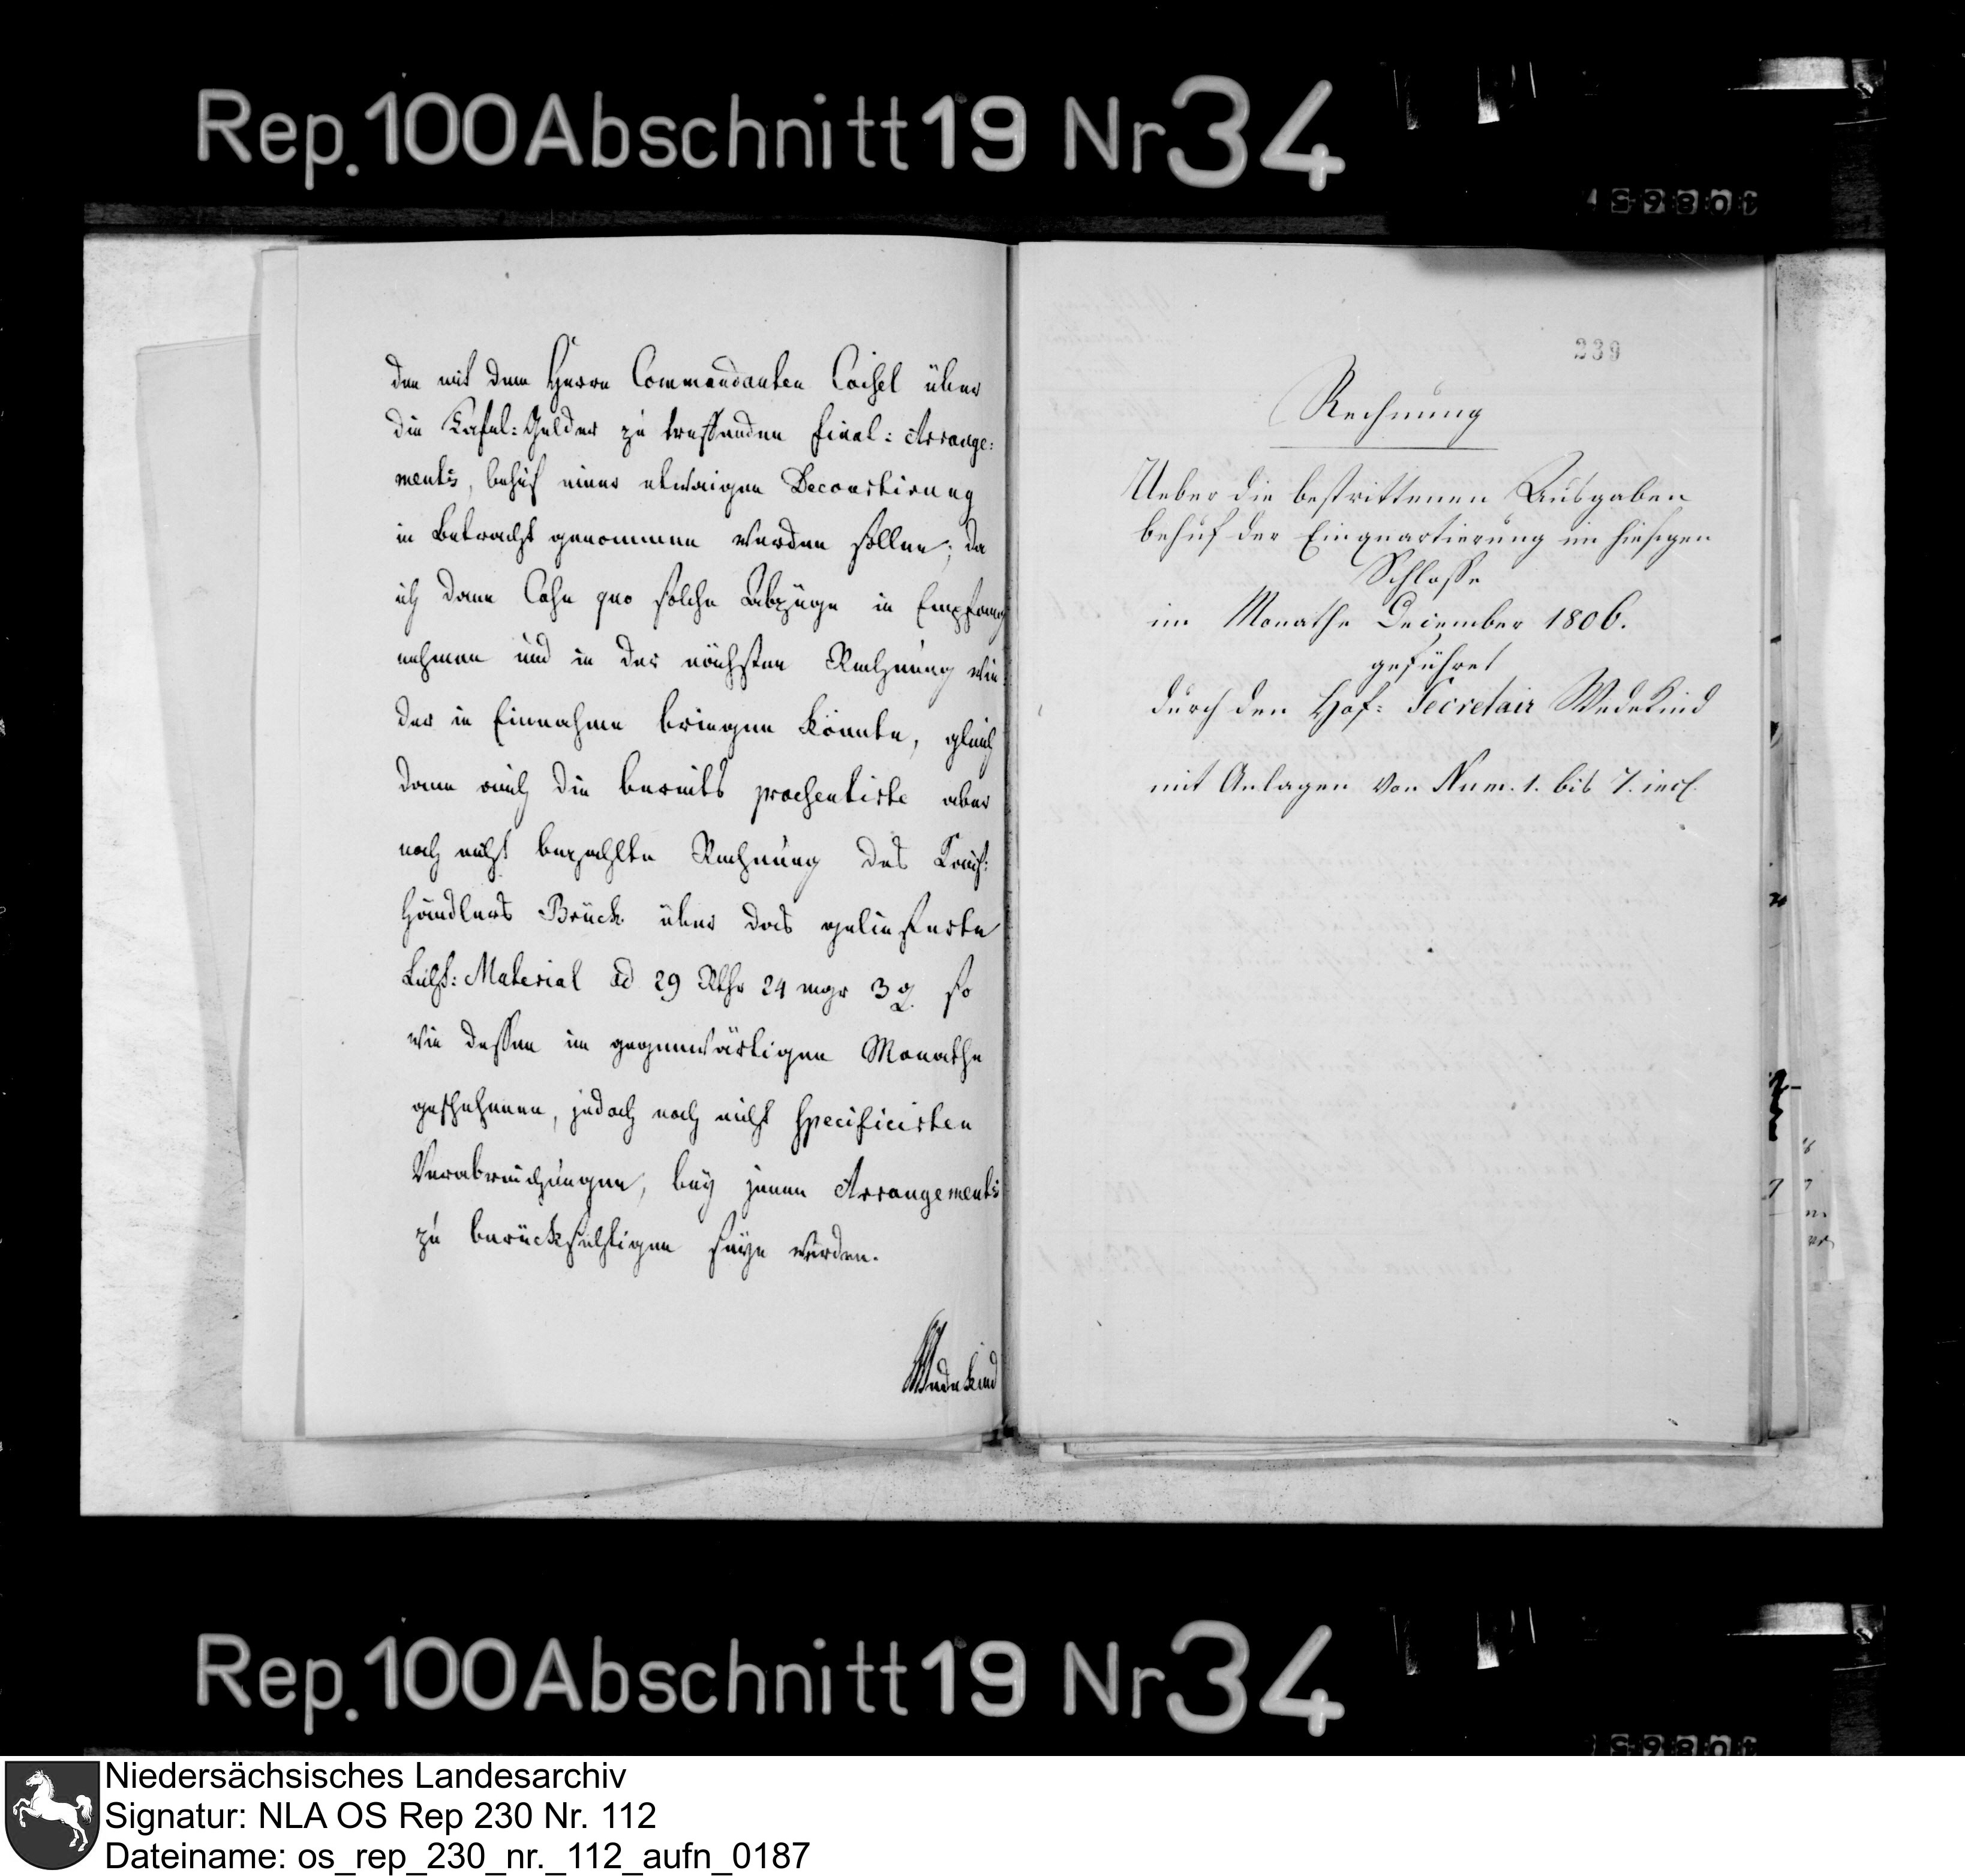 Rep. 100 Abschnitt 19 Nr 34
den mit dem Herrn Commendanten Coisel über
die Tafel: Gelder zu treffenden final: Arrange:
ments, behuf einer etwaigen Decourtirung
in Betracht genommen werden sollen; da
ich dann Cohn quo solche Abzüge in Empfang
nehmen und in der nächsten Rechnung wie
der in Einnahme bringen könnte, gleich
dann auch die bereits praesentirte aber
noch nicht bezahlte Rechnung des Kauf:
händlers Brück über das gelieferte
Licht: Material ad 29 Rthr 24 mgr 3 ₰ so
wie dessen im gegenwärtigen Monathe
geschehenen, jedoch noch nicht specificirten
Verabreichungen, bey jenen Arrangements
zu berücksichtigen seyn werden.
Wedekind
239
Rechnung
Ueber die bestrittenen Ausgaben
behuf der Einquartierung im hiesigen
Schlosse
im Monathe December 1806.
geführet
durch den Hof: Secretair Wedekind
mit Anlagen von Num. 1. bis 7. incl.
Rep. 100 Abschnitt 19 Nr 34
Niedersächsisches Landesarchiv
Signatur: NLA OS Rep 230 Nr. 112
Dateiname: os_rep_230_nr._112_aufn_0187